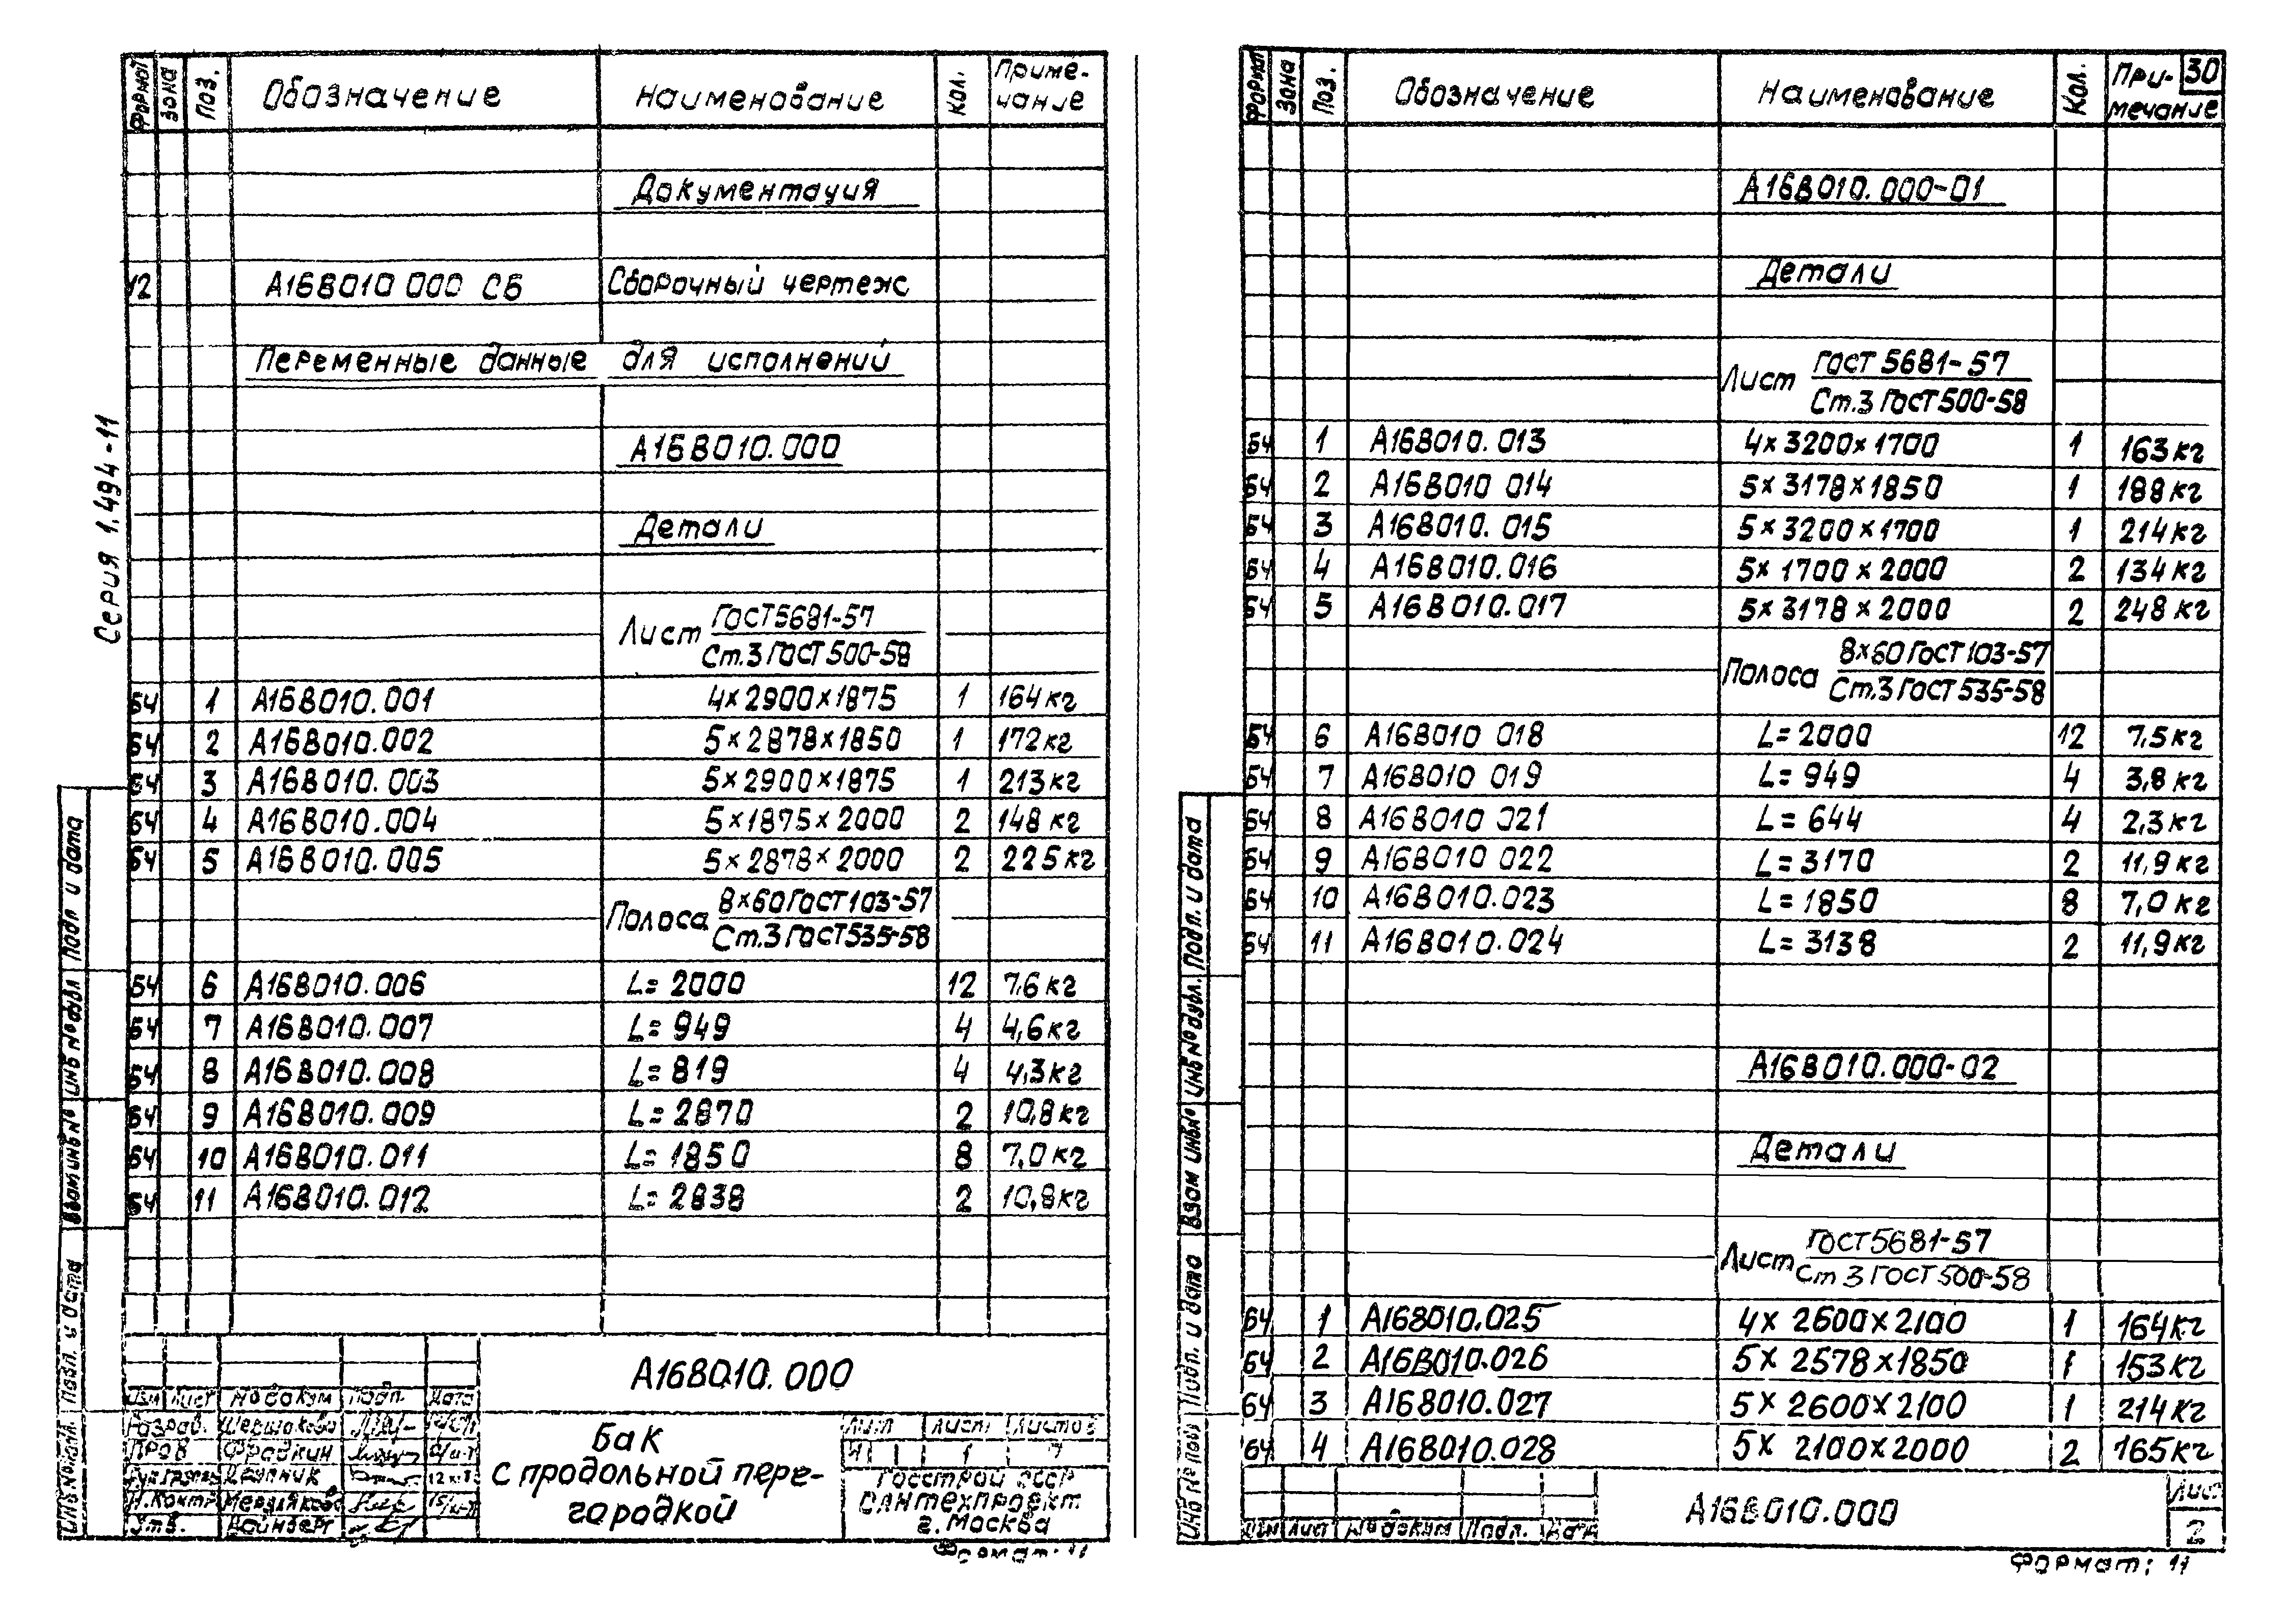 Серия 1.494-11
Формат Зона Поз. Обозначение Наименование Кол. Приме-
чание
Документация
12 А16В010 000 СБ Сборочный чертеж
Переменные данные для исполнений
А16В010.000
Детали
Лист ГОСТ5681-57
Ст.3 ГОСТ500-58
БЧ 1 А16В010.001 4×2900×1875 1 164кг
БЧ 2 А16В010.002 5×2878×1850 1 172кг
БЧ 3 А16В010.003 5×2900×1875 1 213кг
БЧ 4 А16В010.004 5×1875×2000 2 148кг
БЧ 5 А16В010.005 5×2878×2000 2 225кг
Полоса 8×60 ГОСТ103-57
Ст.3 ГОСТ535-58
БЧ 6 А16В010.006 L=2000 12 7,6кг
БЧ 7 А16В010.007 L=949 4 4,6кг
БЧ 8 А16В010.008 L=819 4 4,3кг
БЧ 9 А16В010.009 L=2870 2 10,8кг
БЧ 10 А16В010.011 L=1850 8 7,0кг
БЧ 11 А16В010.012 L=2838 2 10,8кг
Подп и дата
Инв № дубл
Взам инв №
Подп. и дата
Инв № подл.
А16В010.000
Изм Лист № докум Подп. Дата
Разраб.
Пров Фрадкин
Н.Контр
Утв.
Бак
с продольной пере-
городкой
Лит Лист Листов
1
Госстрой СССР
Сантехпроект
г. Москва
Формат: 11
Формат Зона Поз. Обозначение Наименование Кол. При-
мечание
30
А16В010.000-01
Детали
Лист ГОСТ 5681-57
Ст.3 ГОСТ500-58
БЧ 1 А16В010.013 4×3200×1700 1 163кг
БЧ 2 А16В010 014 5×3178×1850 1 188кг
БЧ 3 А16В010.015 5×3200×1700 1 214кг
БЧ 4 А16В010.016 5×1700×2000 2 134кг
БЧ 5 А16В010.017 5×3178×2000 2 248кг
Полоса 8×60 ГОСТ103-57
Ст.3 ГОСТ535-58
БЧ 6 А16В010 018 L=2000 12 7,5кг
БЧ 7 А16В010 019 L=949 4 3,8кг
БЧ 8 А16В010 021 L=644 4 2,3кг
БЧ 9 А16В010 022 L=3170 2 11,9кг
БЧ 10 А16В010.023 L=1850 8 7,0кг
БЧ 11 А16В010.024 L=3138 2 11,9кг
А16В010.000-02
Детали
Лист ГОСТ5681-57
Ст 3 ГОСТ500-58
БЧ 1 А16В010.025 4×2600×2100 1 164кг
БЧ 2 А16В010.026 5×2578×1850 1 153кг
БЧ 3 А16В010.027 5×2600×2100 1 214кг
БЧ 4 А16В010.028 5×2100×2000 2 165кг
Подп. и дата
Инв № дубл.
Взам инв №
Подп. и дата
Инв № подл
Изм Лист № докум Подп. Дата
А16В010.000
Лист
2
Формат: 11